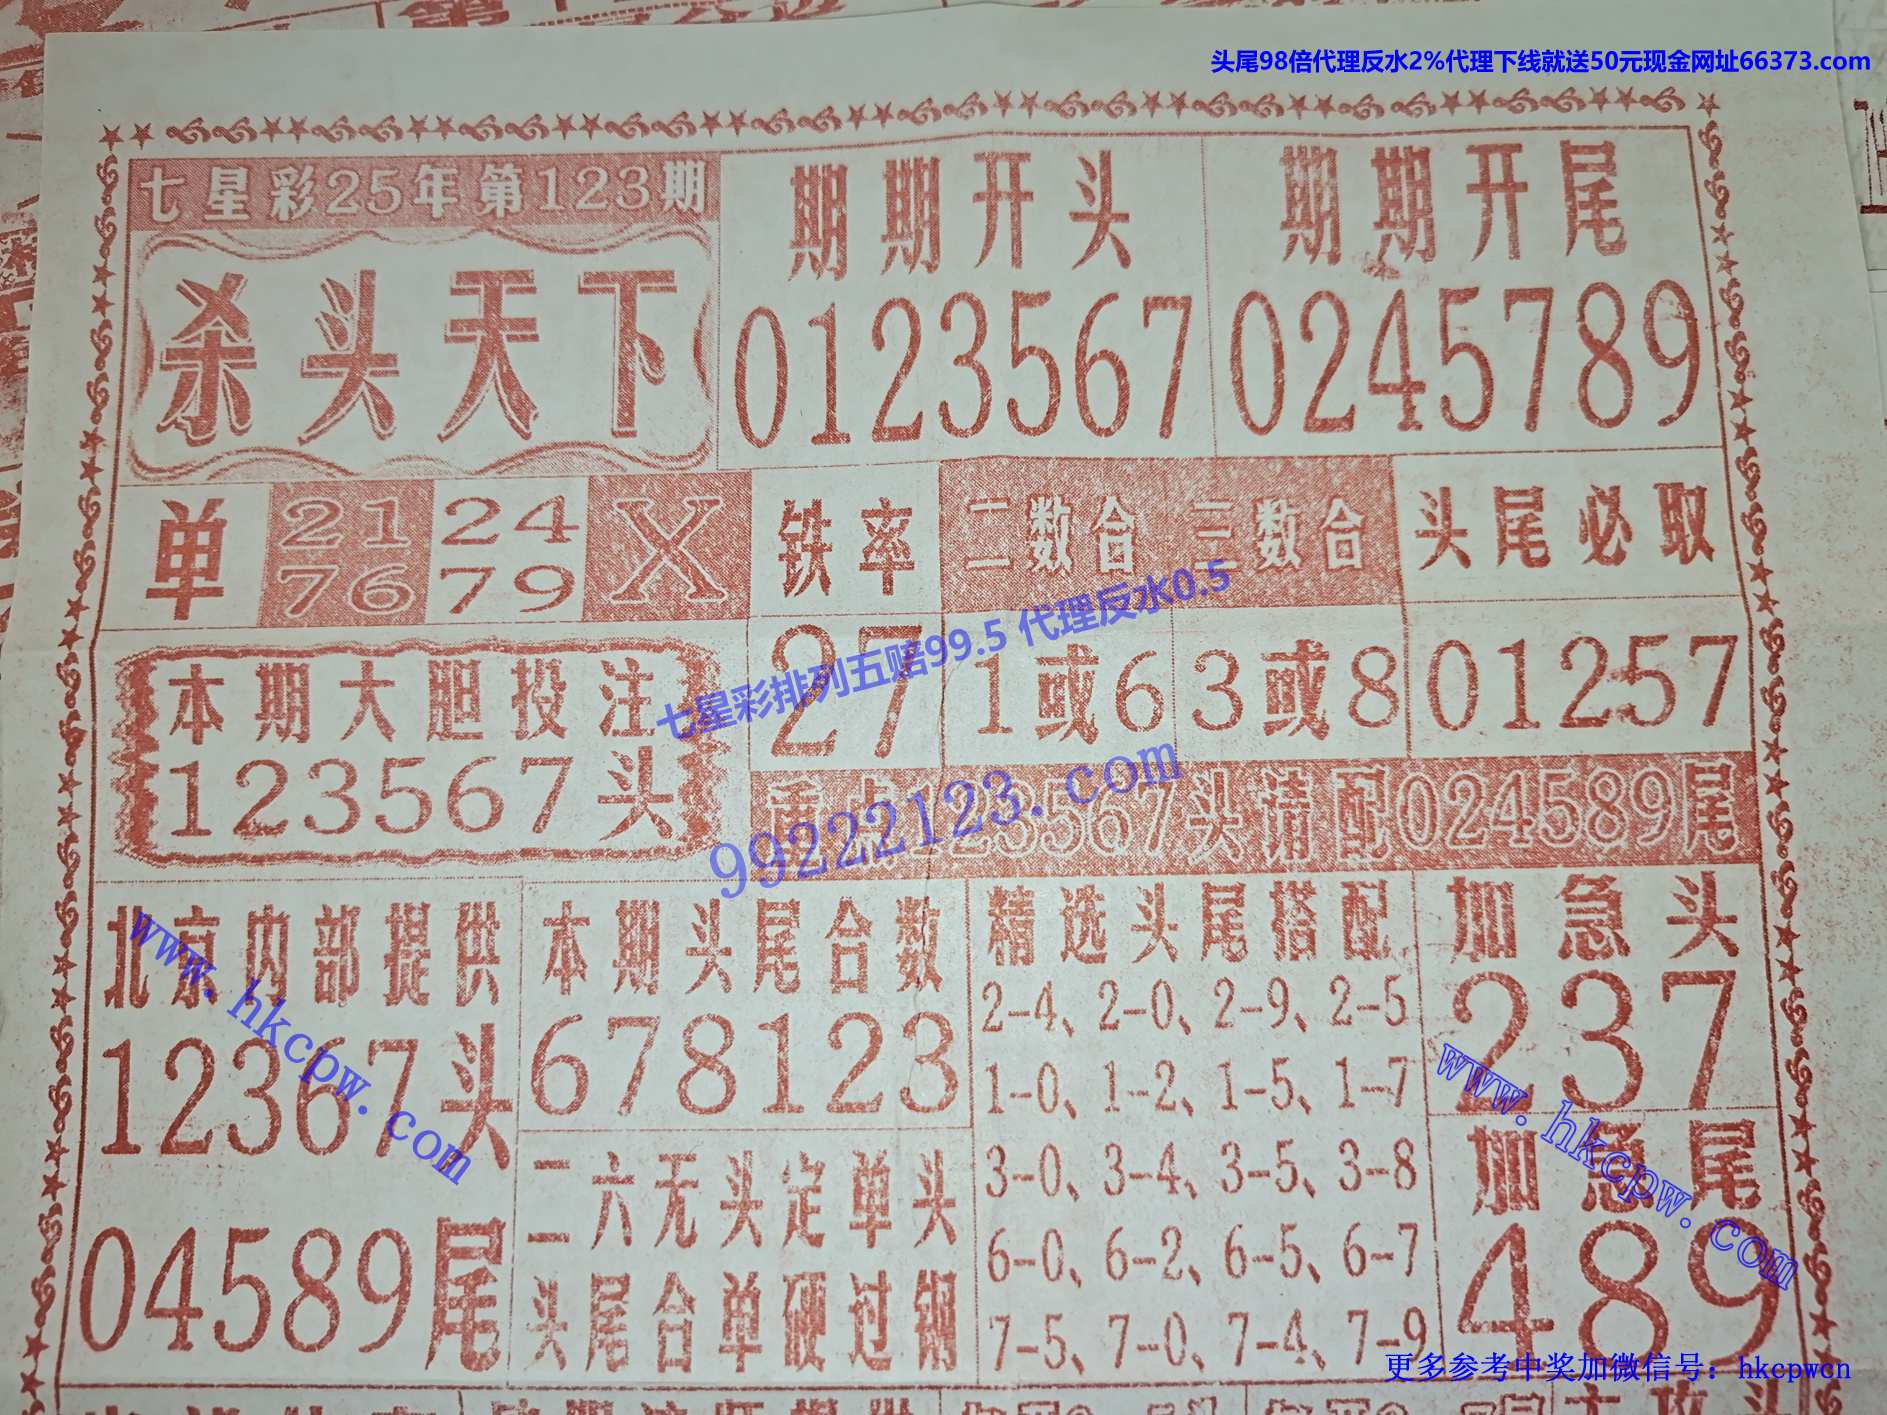 头尾98倍代理反水2%代理下线就送50元现金网址66373.com
七星彩25年第123期
杀头天下
期期开头
0123567
期期开尾
0245789
单
21 24
76 79
X
铁率
27
二数合
1或6
三数合
3或8
头尾必取
01257
本期大胆投注
123567头
重点123567头请配024589尾
七星彩排列五赔99.5 代理反水0.5
99222123.com
北京内部提供
12367头
04589尾
www.hkcpw.com
本期头尾合数
678123
二六无头定单头
头尾合单硬过钢
精选头尾搭配
2-4、2-0、2-9、2-5
1-0、1-2、1-5、1-7
3-0、3-4、3-5、3-8
6-0、6-2、6-5、6-7
7-5、7-0、7-4、7-9
加急头
237
加急尾
489
www.hkcpw.com
更多参考中奖加微信号：hkcpwcn